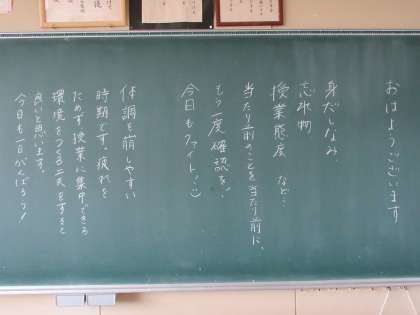 おはようございます
身だしなみ、
忘れ物
授業態度 など…
当たり前のことを当たり前に。
もう一度確認を。
今日もファイト!:)
体調を崩しやすい
時期です。疲れを
ためず授業に集中できる
環境をつくる工夫をすると
良いと思います。
今日も一日がんばろう!